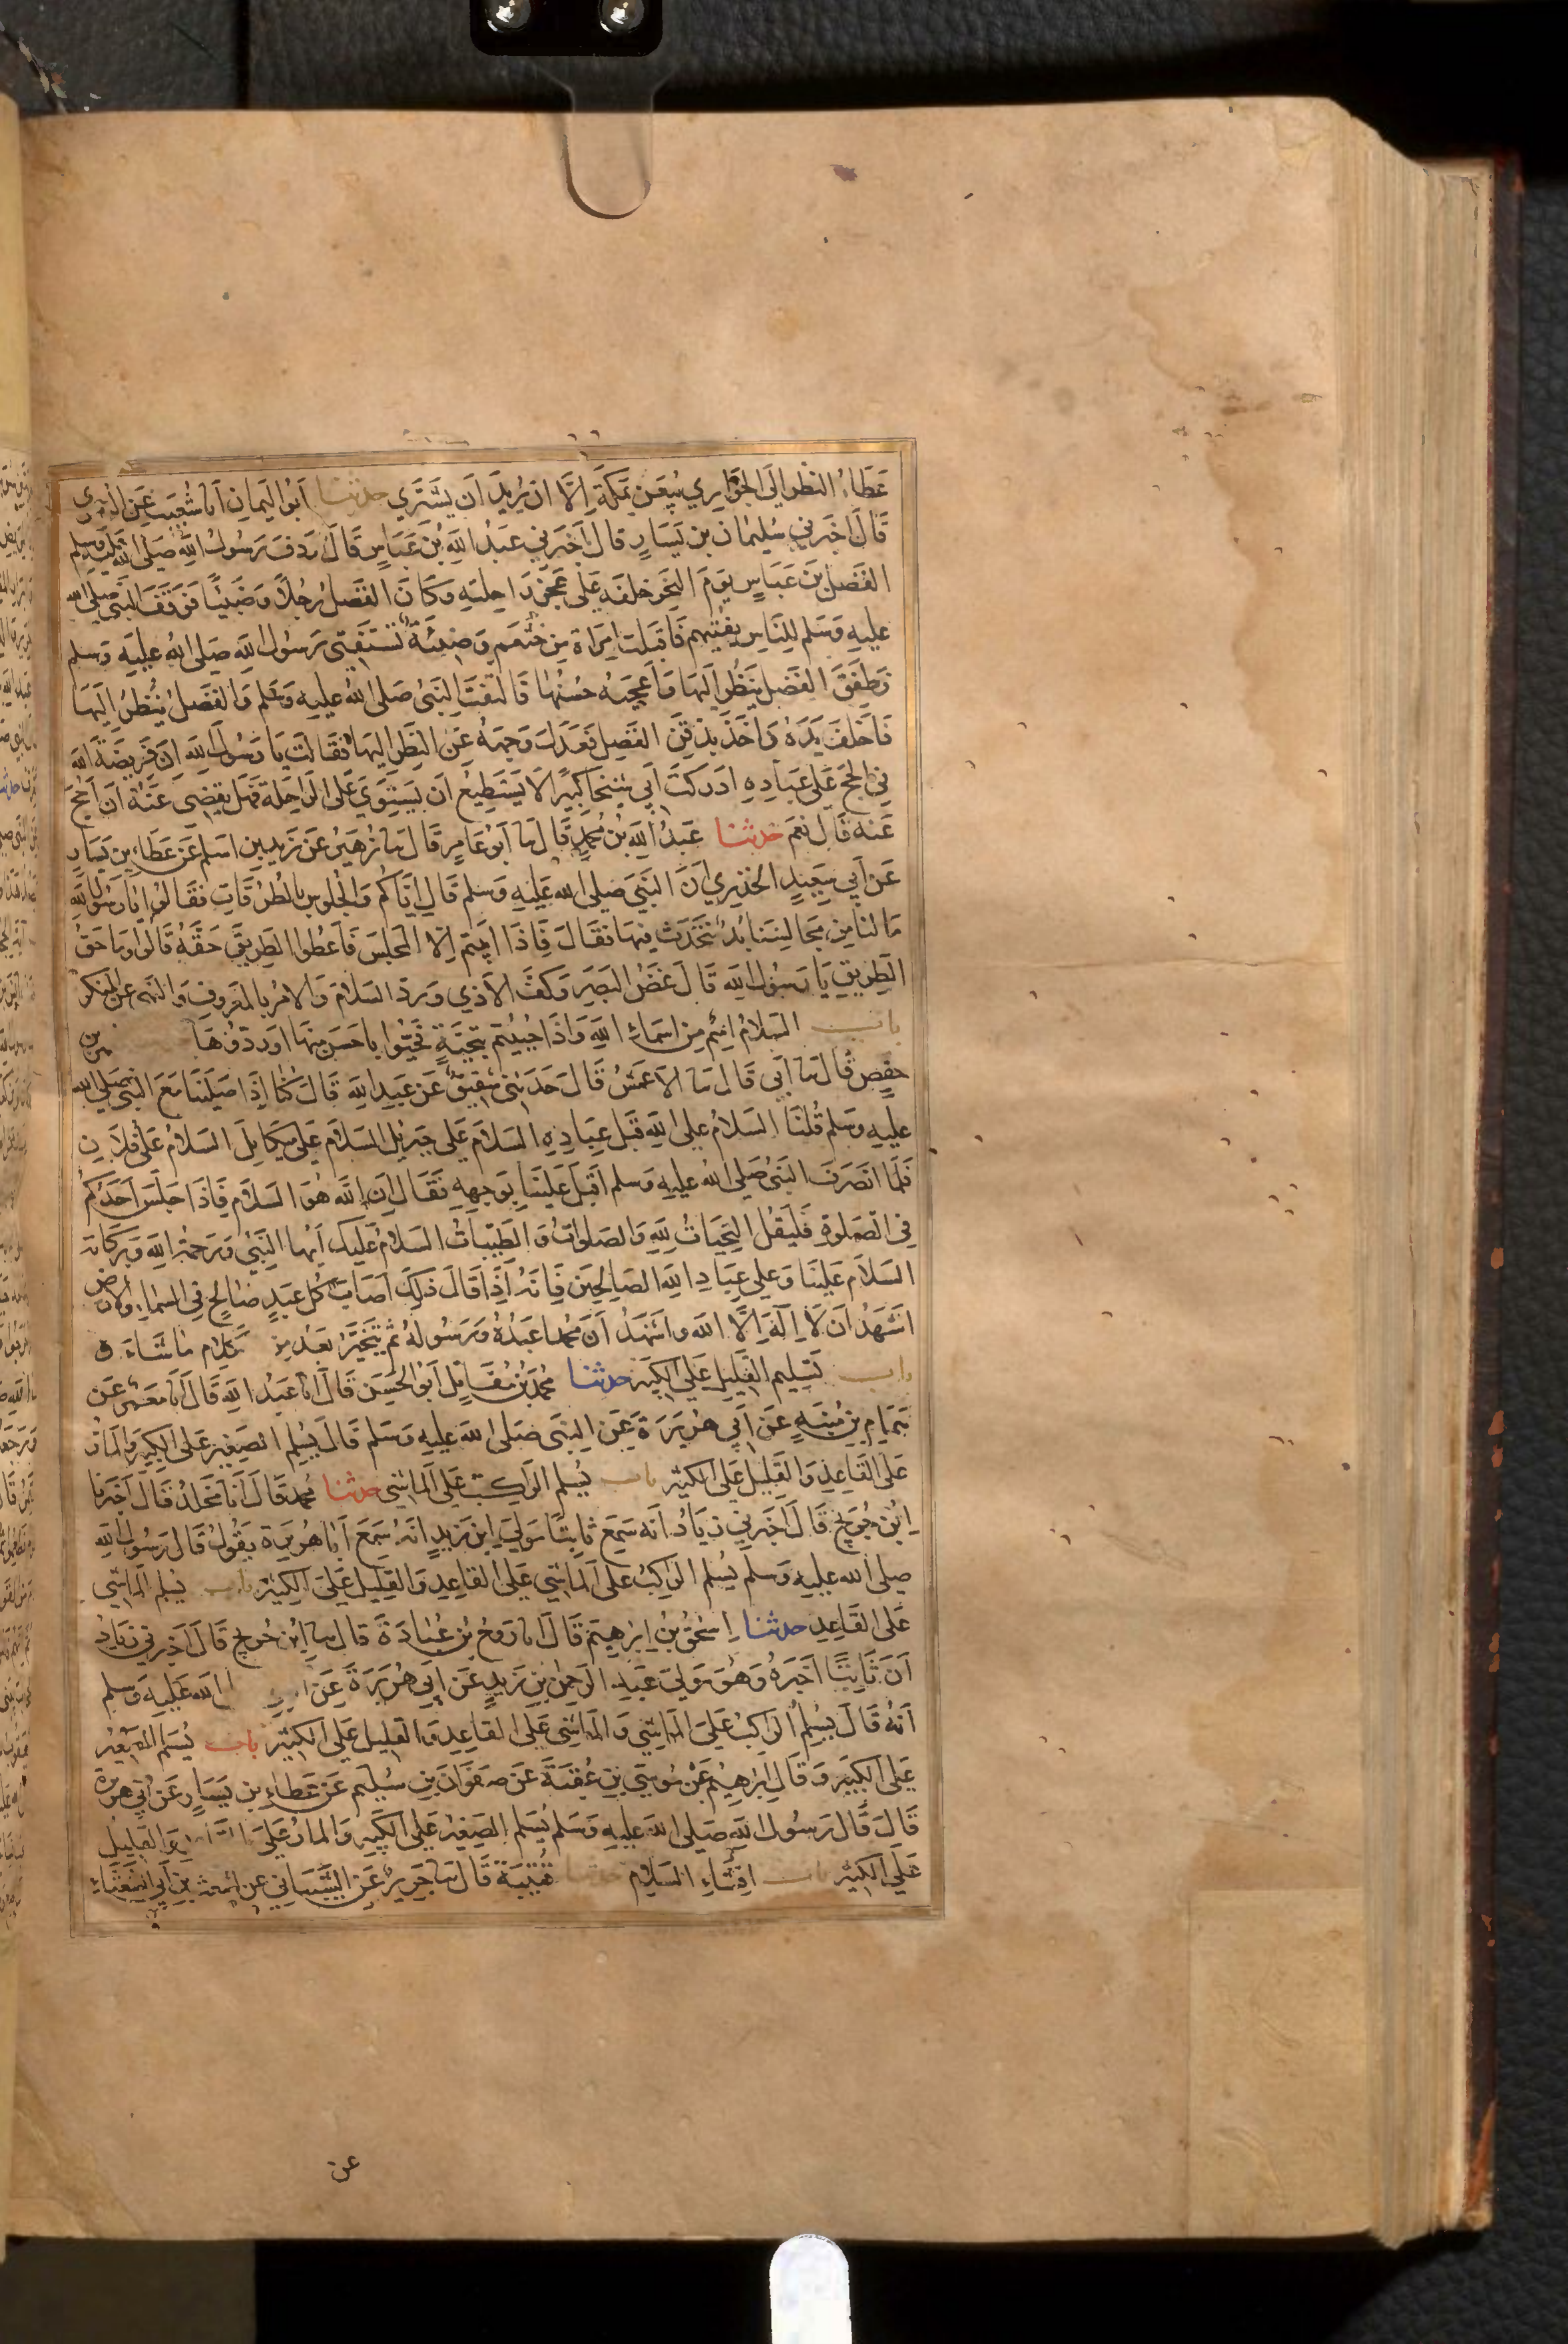 عَطَاءُ النظر الَى الجَوَارِي يُبَعْنَ بِمَكَّةَ اِلَّا ان يُرِيدَ اَن يَشْتَرِي حدثنا اَبُو اليَمانِ اَنا شُعَيب عَن الزهري
قَالَ اخبَرني سُلَيمان بن يَسَارٍ قال اَخبَرني عَبدُ اللهِ بنُ عَبَّاسٍ قَالَ اَردَفَ رَسُولُ اللهِ صَلى الله عليه وسلم
الفَضلَ بنَ عَبَاسٍ يَومَ النَحرِ خلفَه عَلَى عَجُزِ رَاحِلتِهِ وَكَانَ الفَضلُ رَجُلاً وَضِيئًا فَوَقَفَ النَبي صلى الله
عليهِ وَسَلم للِنَاسِ يفتيهم فَاقبَلَت امرَاة مِن خثعم وَضِيئَةٌ تَستَفتِي رَسُولَ اللهِ صَلى اللهُ عليهِ وَسلم
وَطفِقَ الفَضل يَنظُر اليَها وَاَعجَبَه حُسنُها فَالتَفتَ النَبيُ صَلى اللهُ عليهِ وَسَلم وَالفَضلُ يَنظُرُ اِلَيهَا
فَاَخلَفَ بِيَدِهِ فَاَخَذَ بِذَقَنِ الفَضلِ فَعَدَلَ وَجهَهُ عَنِ النَظَرِ اليهَا فَقَالَت يَا رَسُولَ اللهِ اَن فَريضَةَ الله
فِي الحَجِ عَلَى عِبَادِهِ ادَركَت اَبي شَيخًا كبيرًا لَا يَستَطِيعُ اَن يَستَوِيَ عَلَى الرَاحِلَة فَهَل يقضِي عَنهُ اَن اَحُجَّ
عَنه قَالَ نعَم حدثنا عَبدُ اللهِ بنُ مُحَمدٍ قَالَ نا اَبو عَامِرٍ قَالَ نا زُهَيرُ عَن زَيدِ بنِ اسلم عَن عَطَاءِ بنِ يَسَارٍ
عَن اَبي سَعِيدٍ الخدرِي اَنَّ النَبيَّ صلى الله عَلَيهِ وَسلم قَالَ اِيَّاكُم وَالجُلوسَ بالطُرُقَاتِ فقَالُوا يَا رَسُولَ اللهِ
مَا لنَا مِن مَجَالِسِنَا بُدٌ نَتَحَدَث فِيهَا فقَالَ فَاِذَا اَبَيتم اِلّا المجلس فَاَعطُوا الطَرِيقَ حَقَّهُ قَالُوا وَمَا حَقُ
الطَرِيقِ يَا رَسُولَ اللهِ قَالَ غَضُ البَصَرِ وَكَفُّ الاَذي وَرَدُّ السَلامِ وَالامرُ بِالمَعرُوفِ وَالنَهي عَن المنكر
باب السَلامُ اسمٌ مِن اسمَاءِ اللهِ وَاِذَا حُيِّيتم بتحيَّةٍ فحَيُّوا بِاحسَن مِنهَا او ردوهَا
حفصٍ قَالَ نا اَبي قَالَ نا الاَعمَشُ قَالَ حَدَثنِي شقِيقٌ عَن عَبدِ اللهِ قَالَ كُنا اِذَا صَلَينَا مَعَ النَبي صلى الله
عليهِ وَسَلم قُلنَا السَلامُ عَلى اللهِ قبلَ عِبَادِهِ السَلامَ عَلى جِبريل السَلامَ عَلى مِيكايِل السَلامُ عَلَى فلانٍ
فَلمَّا انصَرفَ النَبيُ صَلى الله عليهِ وَسلم اقبَلَ عَلَينَا بِوجهِهِ فَقَالَ اِن اللهَ هُو السَلام فَاِذَا جَلَسَ اَحَدُكُم
فِي الصَلوةِ فَليَقُل التَحِيَاتُ لِلهِ وَالصَلواتُ وَالطَيِّبَاتُ السَلامُ عَلَيك اَيُّها النَبيُ وَرَحمَة الله وَبَركَاته
السَلام عَلَينَا وَعلى عِبَادِ اللهِ الصَالحِينَ فَاِنه اِذَا قَالَ ذَلِكَ اصَابَ كُلَّ عَبدٍ صَالحٍ في السَماءِ والارض
اشَهَدُ اَن لَا اِلَهَ اِلَّا الله وَاشهَدُ اَنَّ محمدا عَبدُهُ وَرَسُوله ثُم يَتَخَيَّرُ بَعدُ مِن كلام مَا شَاءَ
باب تَسلِيم القَلِيلِ عَلَى الكثِير حدثنا محَمدُ بنُ مُقَاتِلٍ اَبُو الحَسَن قَالَ انا عَبدُ اللهِ قَالَ انا مَعمَر عَن
هَمَّامِ بنِ مُنَبهٍ عَن اَبِي هُرَيرَةَ عَنِ النَبي صَلى الله عَليهِ وَسَلم قَالَ يُسَلم الصَغِيرُ عَلَى الكَبيرِ وَالمَارُّ
عَلَى القَاعِدِ وَالقَلِيلُ عَلَى الكثير باب يُسَلم الرَاكِب عَلَى المَاشي حدثنا محَمد قَالَ اَنا مخلَدٌ قَالَ اَخبَرنا
اِبنُ جُرَيجٍ قَالَ اَخبَرَنِي زيَادٌ انَه سَمِعَ ثَابِتًا مَولَى ابنِ زَيدٍ انَه سَمِعَ اَبَا هُرَيرة يقُولُ قَالَ رَسُولُ اللهِ
صلى الله عليهِ وَسلم يُسَلم الرَاكِبُ عَلى المَاشي وَالمَاشي عَلَى القَاعِدِ وَالقَلِيلُ عَلَى الكَثِير باب يُسَلم المَاشي
عَلَى القَاعِدِ حدثنا اِسحَقُ بنُ اِبرهِيمَ قَالَ انا رَوحُ بنُ عُبَادَةَ قَالَ نا ابنُ جُريجٍ قَالَ اَخبَرني زِيَادٌ
اَنَ ثَابِتًا اَخبَرَهُ وَهُوَ مَولى عَبدِ الرَحمنِ بنِ زَيدٍ عَن اَبي هُرَيرَةَ عَن الله عَلَيهِ وَسلم
اَنهُ قَالَ يُسَلمُ الرَاكِبُ عَلَى المَاشِي وَالمَاشِي عَلَى القَاعِدِ وَالقَلِيل عَلَى الكثِير باب يُسَلم الصَغِيرُ
عَلَى الكَبِيرِ وَقَالَ اِبرَهِيمُ عَن مُوسَى بنِ عُقبَةَ عَن صَفوَانَ بنِ سُلَيم عَن عَطاءِ بنِ يَسَارٍ عَن اَبي هُرَيرة
قَالَ قَالَ رَسُولُ اللهِ صَلى الله عليهِ وَسَلم يُسَلم الصَغِيرُ عَلَى الكَبيرِ وَالمارُّ عَلَى القَاعِدِ وَالقَلِيل
عَلَى الكثِير باب اِفشَاءِ السَلامِ حدثنا قُتَيبَةُ قَالَ نا جَرِيرٌ عَنِ الشَّيبَانِي عَن اشعَث بنِ اَبي الشَعثَاءِ
عن